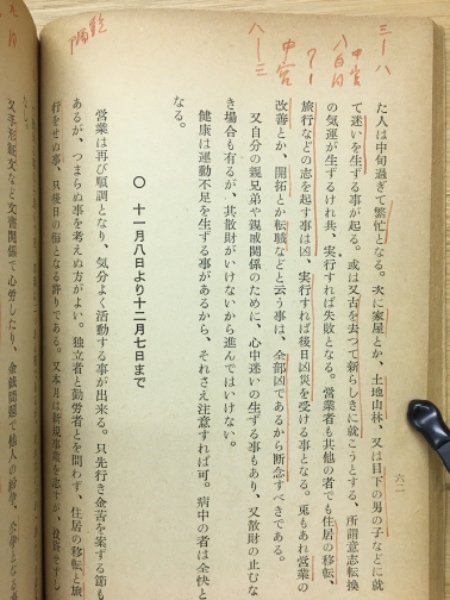 三ー八
中宮
八白
中宮
八ー三
た人は中旬過ぎて繁忙となる。次に家屋とか、土地山林、又は目下の男の子などに就
て迷いを生ずる事が起る。或は又古を去つて新らしきに就こうとする、所謂意志転換
の気運が生ずるけれ共、実行すれば失敗となる。営業者も其他の者でも住居の移転、
旅行などの志を起す事は凶、実行すれば後日凶災を受ける事となる。兎もあれ営業の
改善とか、開拓とか転職などと云う事は、全部凶であるから断念すべきである。
又自分の親兄弟や親戚関係のために、心中迷いの生ずる事もあり、又散財の止むな
き場合も有るが、其散財がいけないから進んではいけない。
健康は運動不足を生ずる事があるから、それさえ注意すれば可。病中の者は全快と
なる。
〇 十一月八日より十二月七日まで
営業は再び順調となり、気分よく活動する事が出来る。只先行き金苦を案ずる節も
あるが、つまらぬ事を考えぬ方がよい。独立者と勤労者とを問わず、住居の移転と旅
行をせぬ事、只後日の悔となる許りである。又本月は新規事電を志すが、投資をすし
又手形証文など文書関係で心労したり、金銭問題で他人の
六二